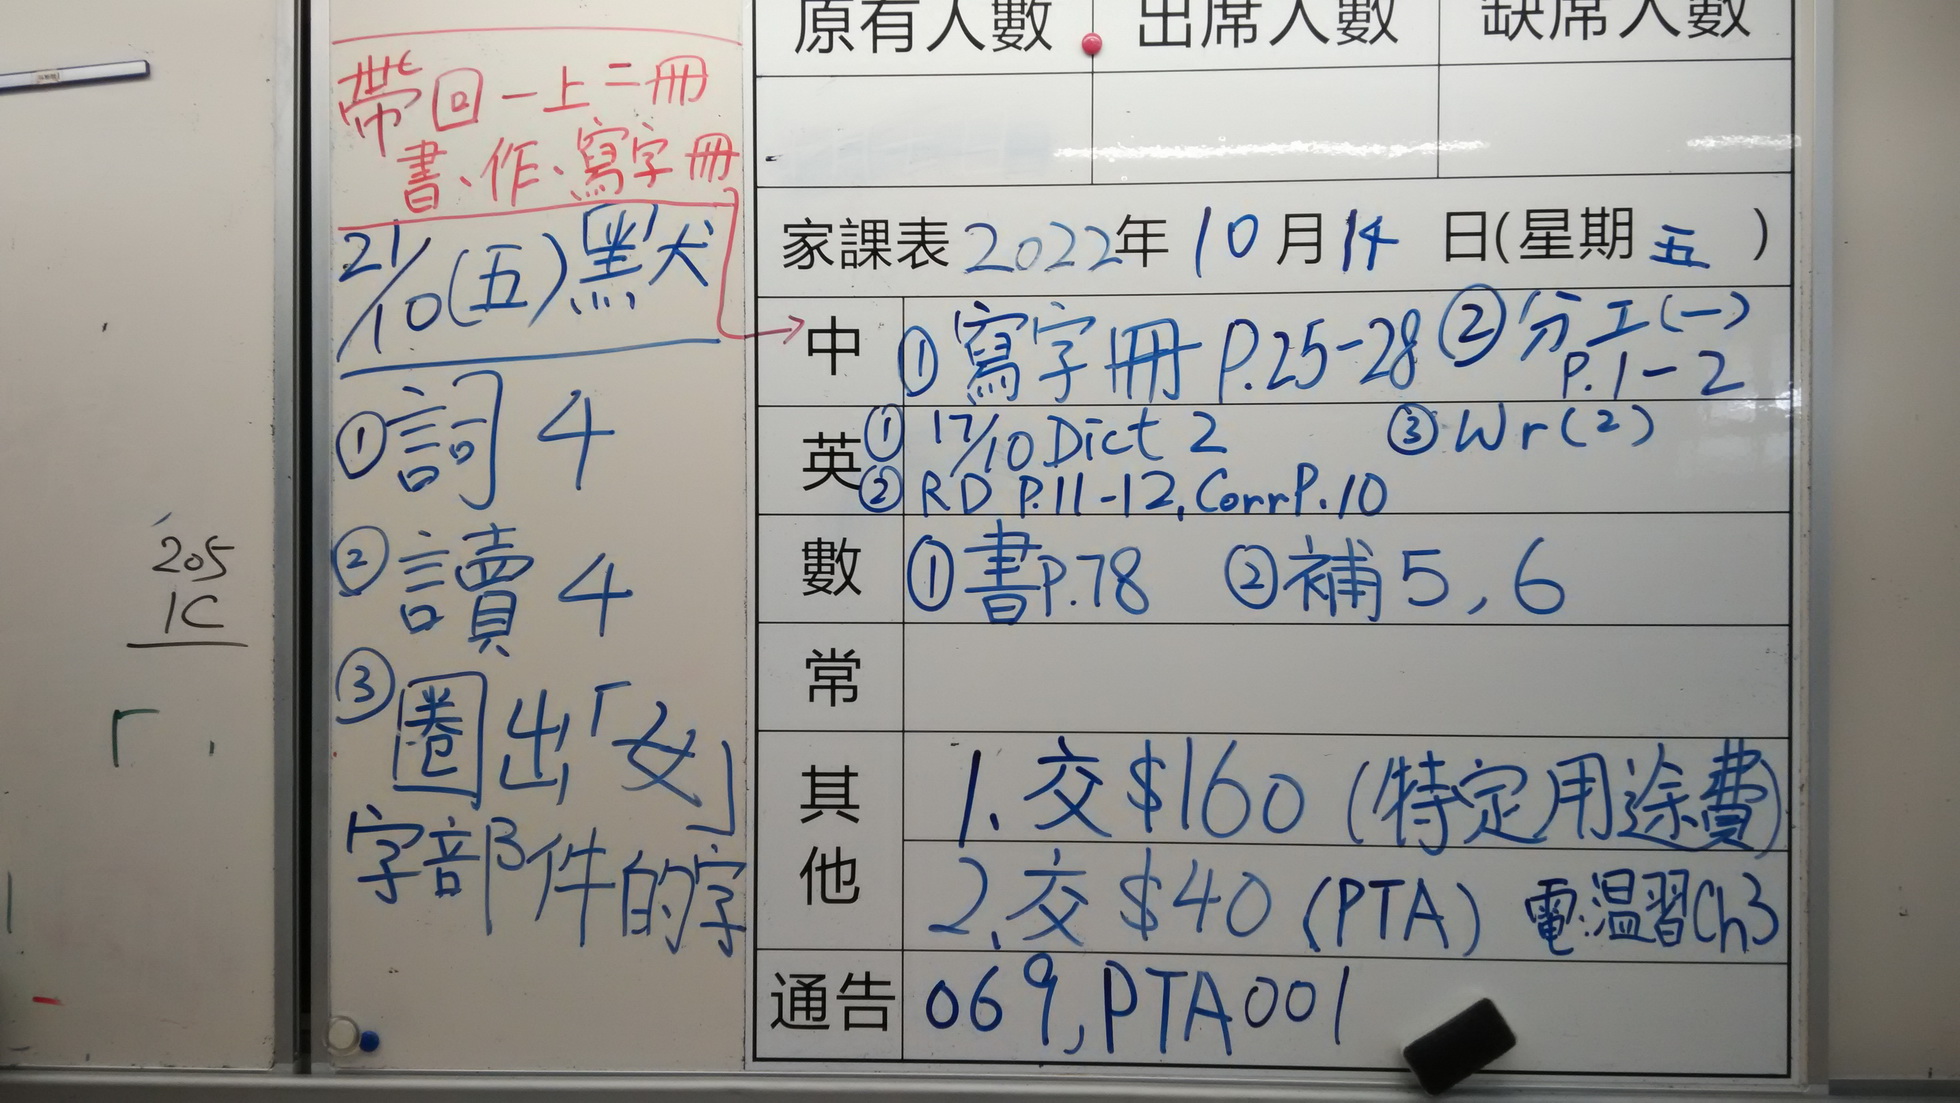 205
1C
帶回一上二冊
書、作、寫字冊
21/10(五)默犬
①詞4
②讀4
③圈出「女」
字部件的字
原有人數 出席人數 缺席人數
家課表2022年10月14日(星期五)
中 ①寫字冊 P.25-28 ②分工(一)
P.1-2
英 ① 17/10 Dict 2 ③Wr(2)
② RD P.11-12, Corr P.10
數 ①書P.78 ②補5,6
常
其他 1. 交$160(特定用途費)
2. 交$40(PTA) 電:溫習Ch3
通告 069, PTA001